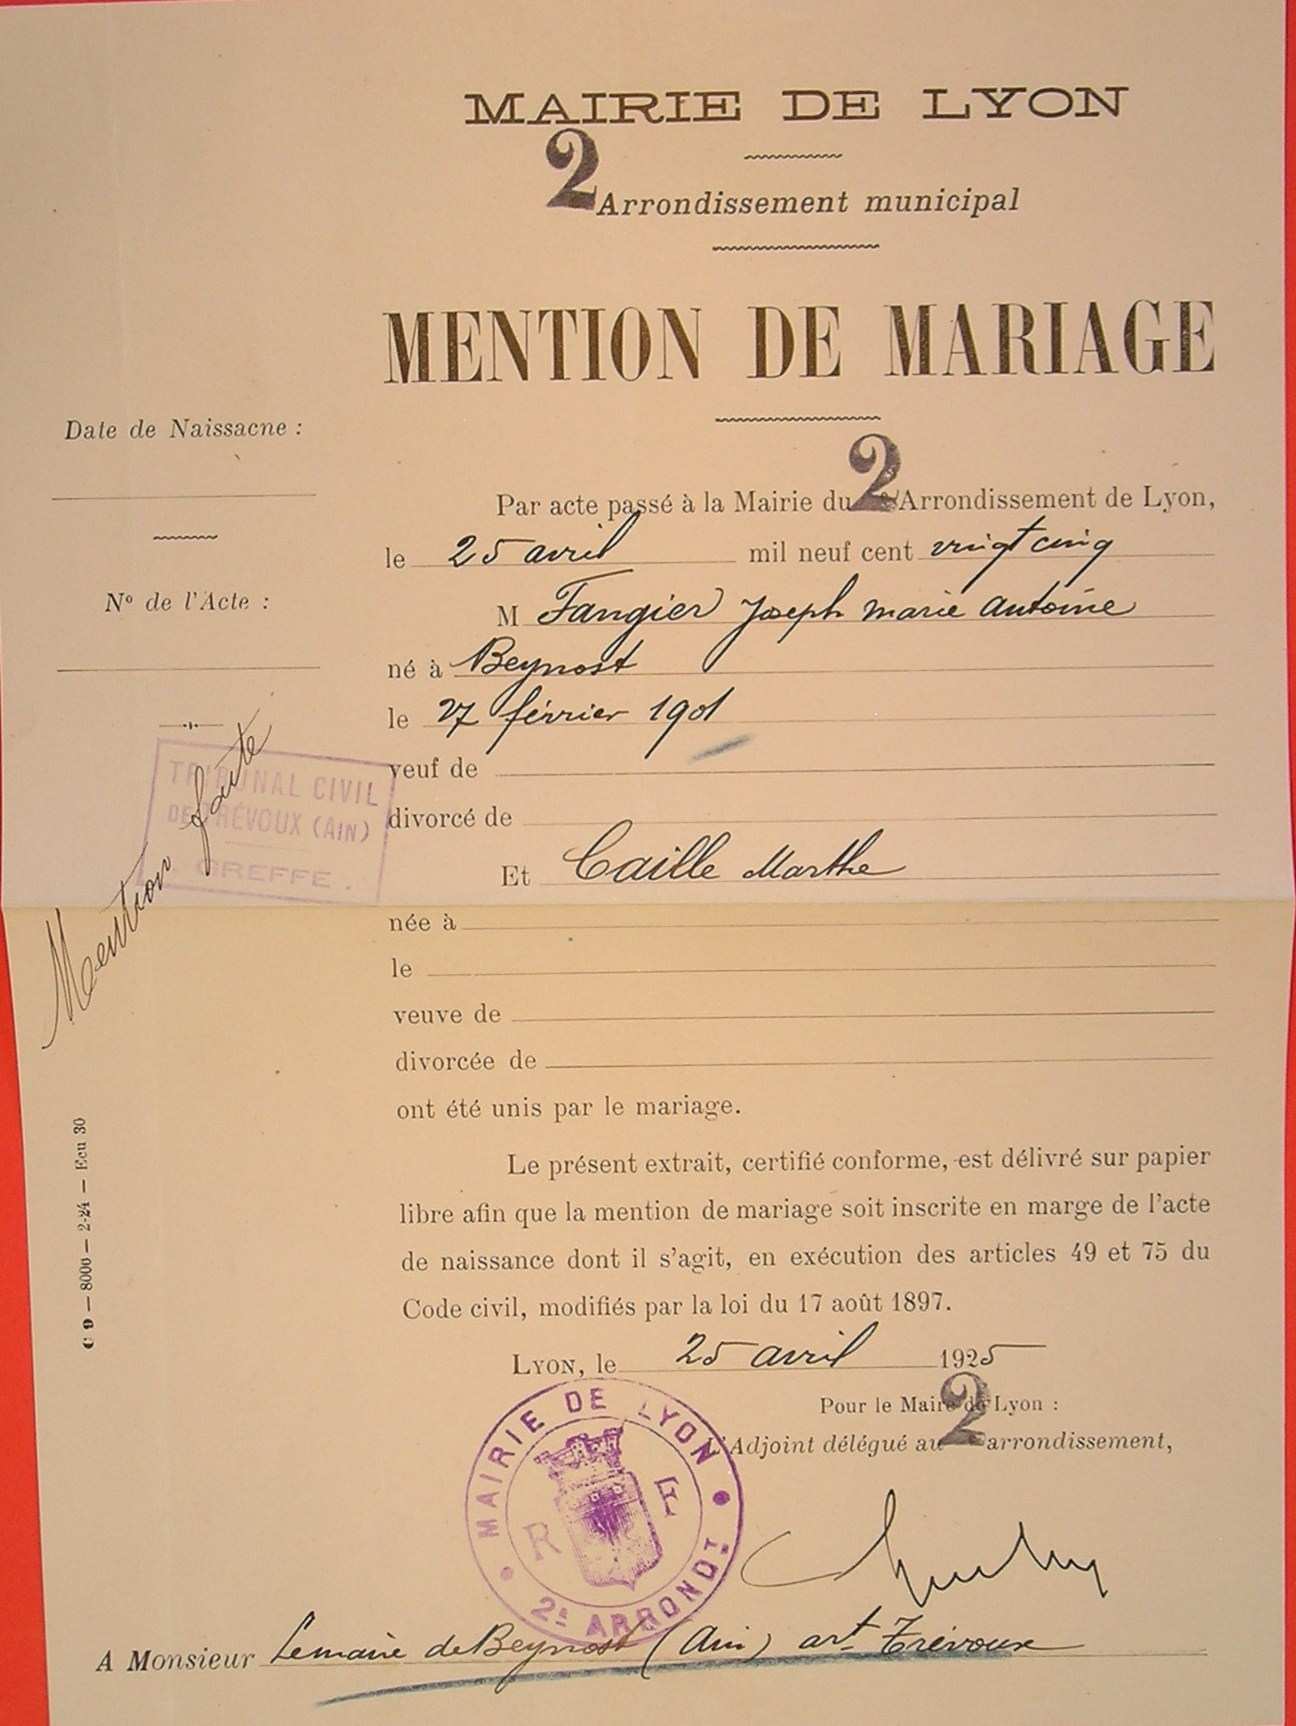 MAIRIE DE LYON
2 Arrondissement municipal
MENTION DE MARIAGE
Date de Naissacne :
N° de l'Acte :
Mention faite
TRIBUNAL CIVIL
DE TRÉVOUX (AIN)
GREFFE.
C 9 — 8000 — 2-24 — Ecu 30
Par acte passé à la Mairie du 2 Arrondissement de Lyon,
le 25 avril mil neuf cent vingt cinq
M Fangier Joseph Marie Antoine
né à Beynost
le 27 février 1901
veuf de
divorcé de
Et Caille Marthe
née à
le
veuve de
divorcée de
ont été unis par le mariage.
Le présent extrait, certifié conforme, est délivré sur papier
libre afin que la mention de mariage soit inscrite en marge de l'acte
de naissance dont il s'agit, en exécution des articles 49 et 75 du
Code civil, modifiés par la loi du 17 août 1897.
LYON, le 25 avril 1925
Pour le Maire de Lyon :
L'Adjoint délégué au 2 arrondissement,
MAIRIE DE LYON
R F
2e ARRONDT
A Monsieur Lemaire de Beynost (Ain) art Trévoux